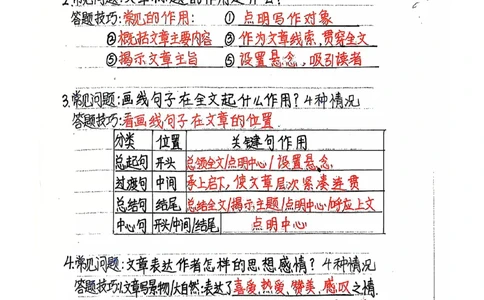 2.常见问题:文章标题的作用是什么?
答题技巧:常见的作用: ① 点明写作对象
②概括文章主要内容 ③ 作为文章线索,贯穿全文
④揭示文章主旨 ⑤ 设置悬念,吸引读者
3.常见问题:画线句子在全文起什么作用?4种情况
答题技巧:看画线句子在文章的位置
分类 位置 关键句作用
总起句 开头 总领全文/点明中心/设置悬念
过渡句 中间 承上启下,使文章层次紧凑连贯
总结句 结尾 总结全文/揭示主题/点明中心/呼应上文
中心句 开头/中间/结尾 点明中心
4.常见问题:文章表达作者怎样的思想感情?4种情况
答题技巧:1.文章写景物/大自然:表达了喜爱,热爱、赞美,感叹之情.